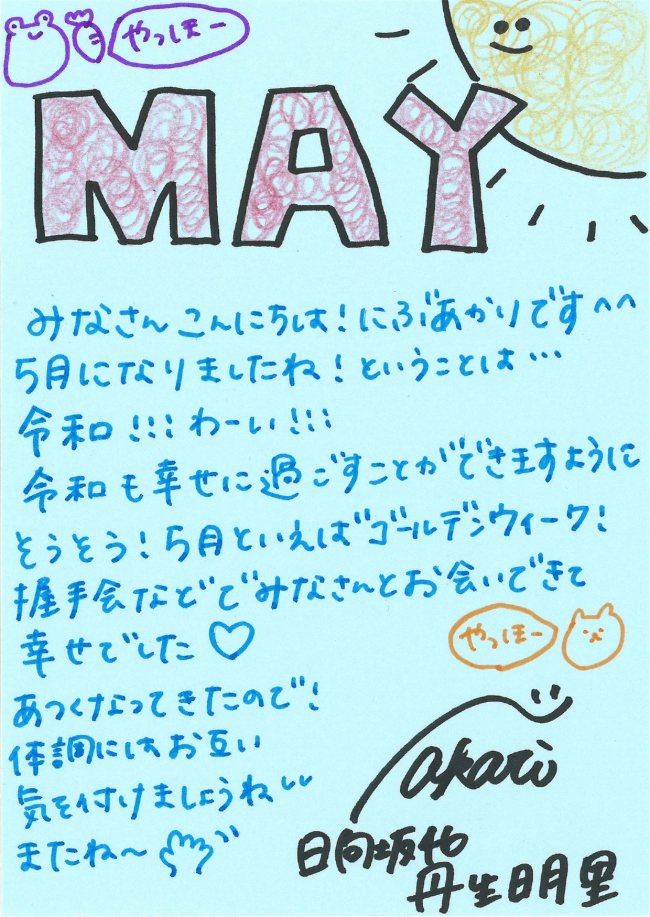 やっほー
MAY
みなさんこんにちは！にぶあかりです^^
5月になりましたね！ということは…
令和！！！わーい！！！
令和も幸せに過ごすことができ王すように
そうそう！5月といえばゴールデンウィーク！
握手会などでみなさんとお会いできて
幸せでした♡
やっほー
あつくなってきたので！
体調にはお互い
気を付けましょうね
またね〜
akari
日向坂46
丹生明里